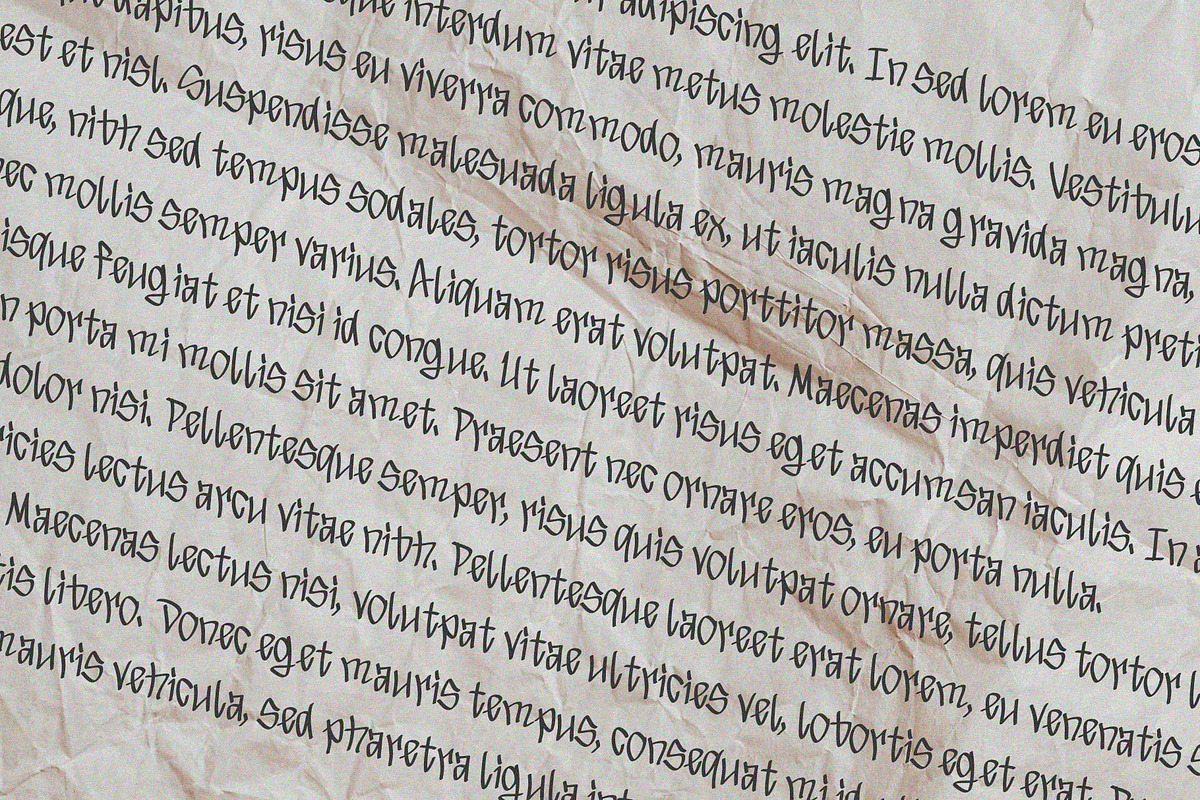 adipiscing elit. In sed lorem eu eros
interdum vitae metus molestie mollis. Vestibulu
dapibus, risus eu viverra commodo, mauris magna gravida magna,
est et nisl. Suspendisse malesuada ligula ex, ut iaculis nulla dictum preti
que, nibh sed tempus sodales, tortor risus porttitor massa, quis vehicula
nec mollis semper varius. Aliquam erat volutpat. Maecenas imperdiet quis
isque feugiat et nisi id congue. Ut laoreet risus eget accumsan iaculis. In a
n porta mi mollis sit amet. Praesent nec ornare eros, eu porta nulla.
dolor nisi. Pellentesque semper, risus quis volutpat ornare, tellus tortor l
ricies lectus arcu vitae nibh. Pellentesque laoreet erat lorem, eu venenatis s
Maecenas lectus nisi, volutpat vitae ultricies vel, lobortis eget erat.
tis libero. Donec eget mauris tempus, consequat mi id
mauris vehicula, sed pharetra ligula int